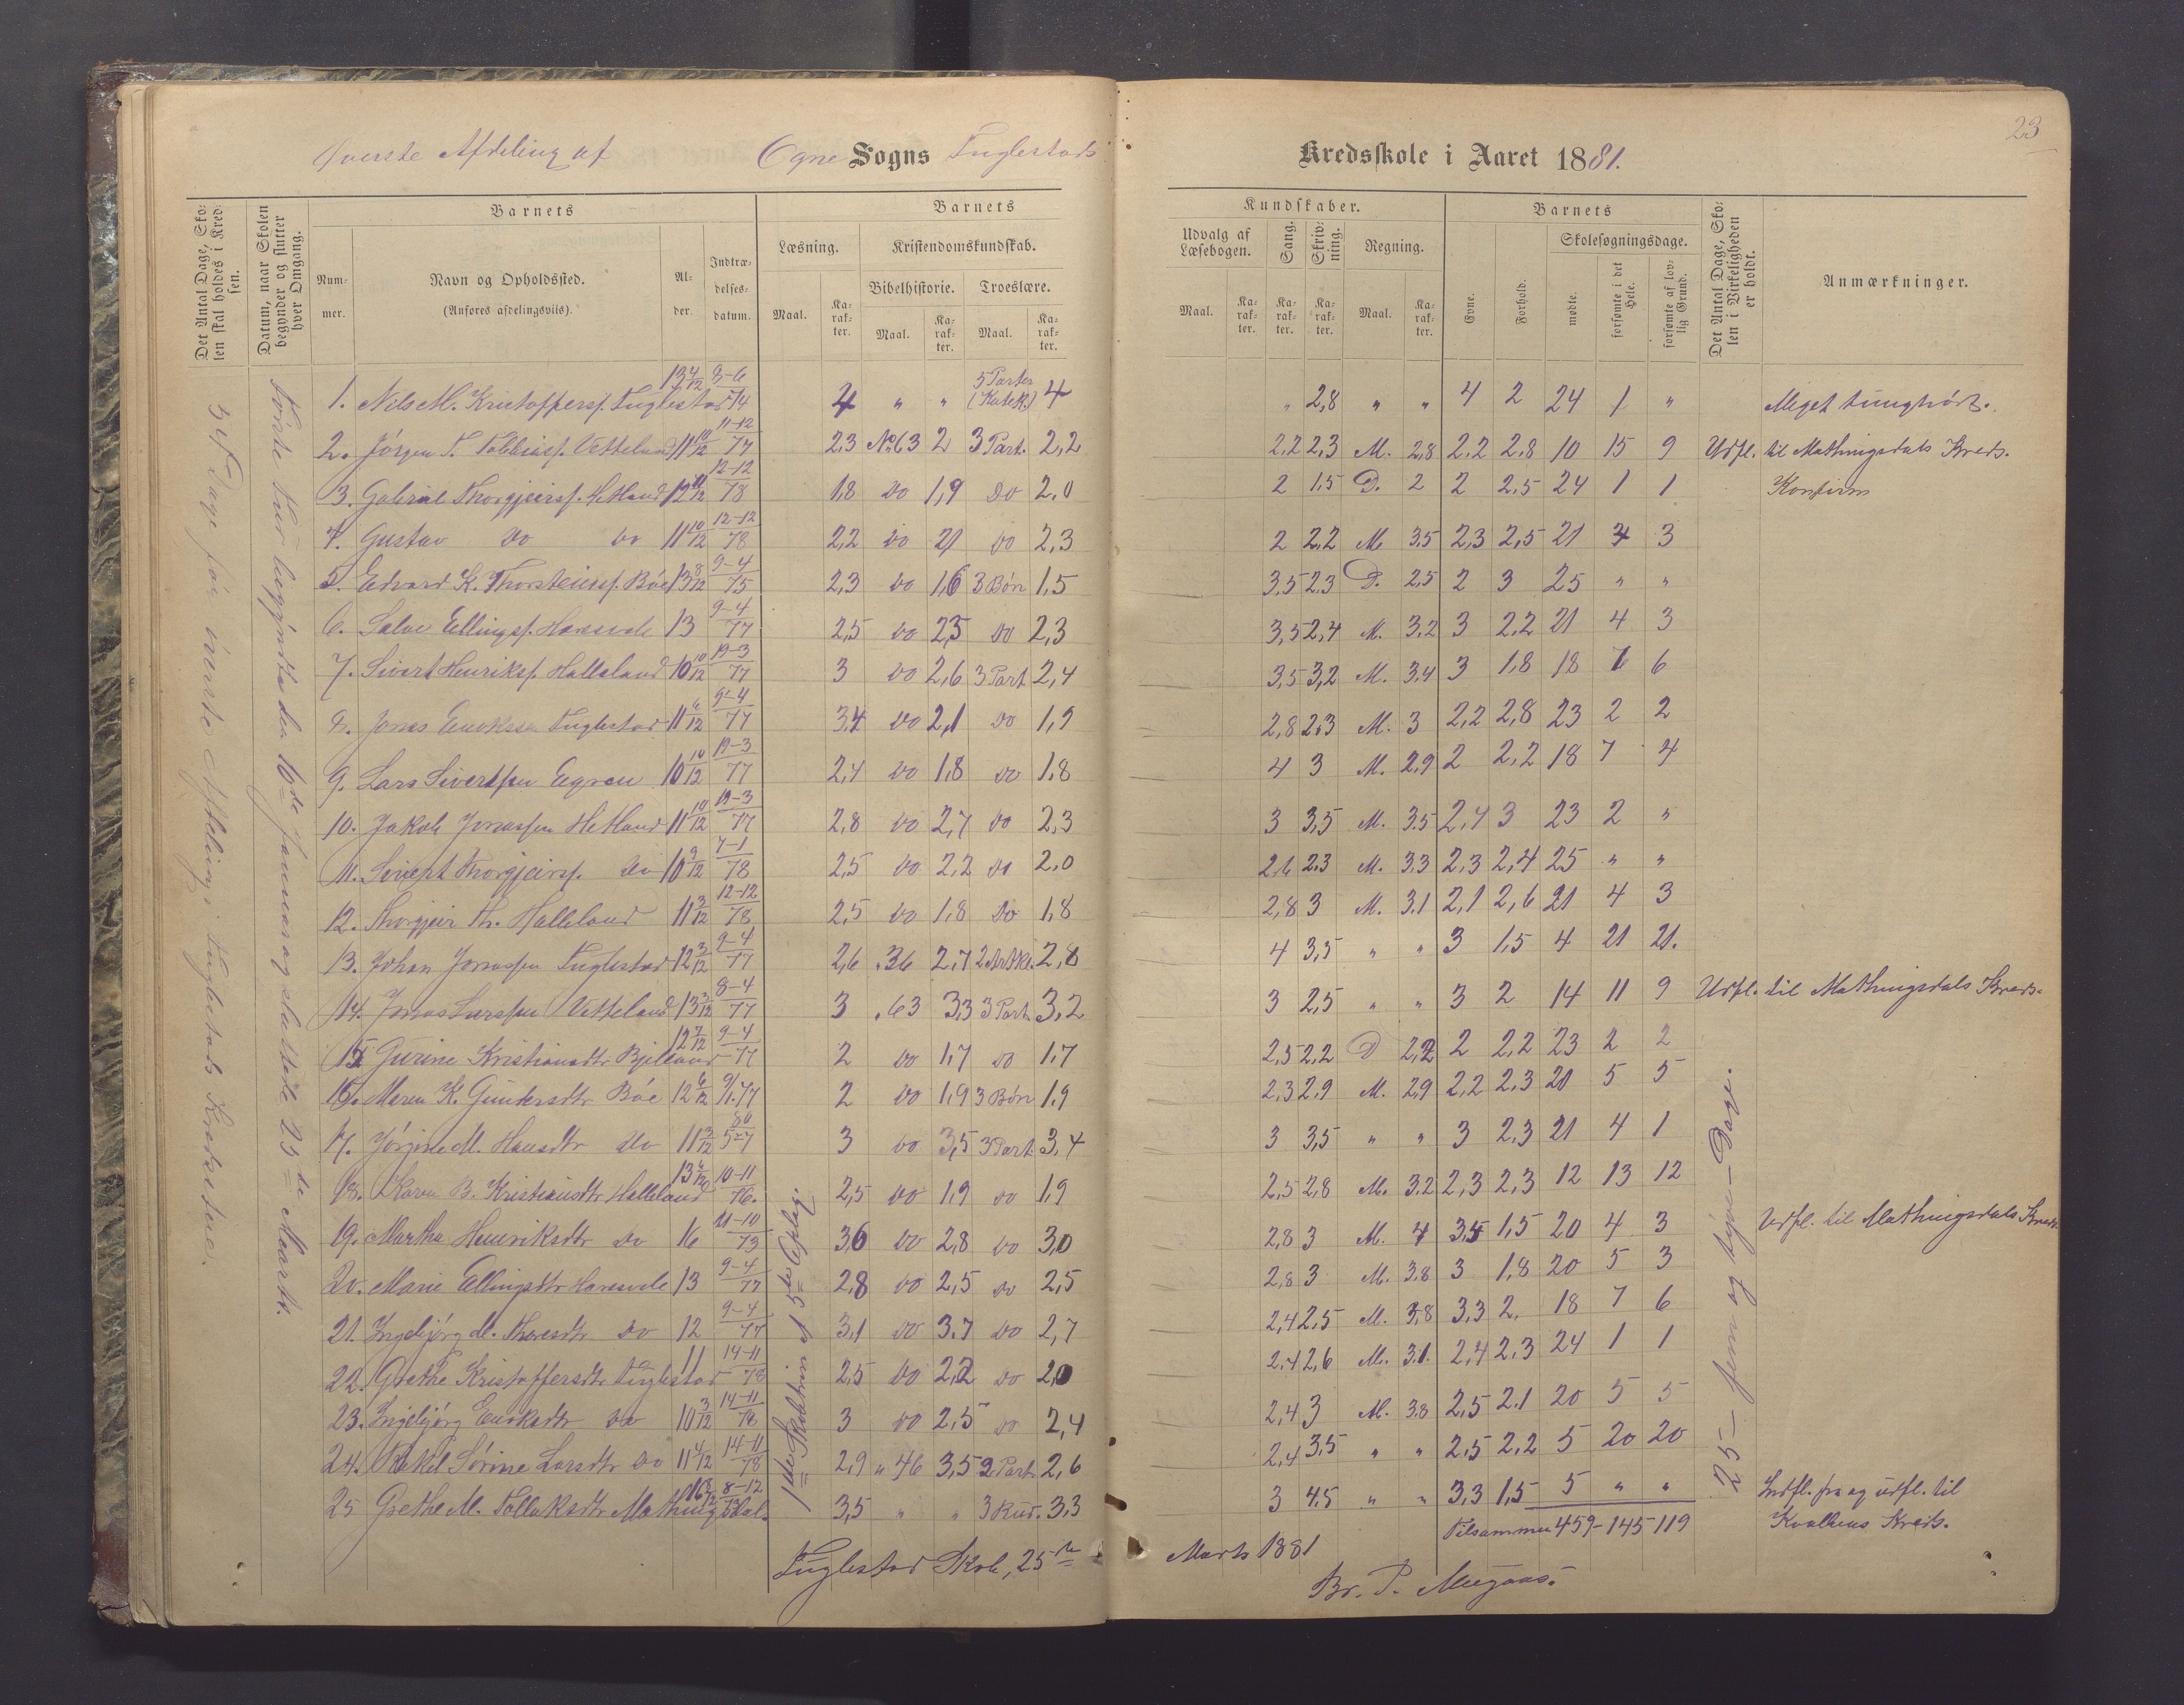 23
Øverste Afdeling af Ogne Sogns Fuglestads Kredsskole i Aaret 1881.
Det Antal Dage, Skolen skal holdes i Kredsen.
Datum, naar Skolen begynder og slutter hver Omgang.
Barnets
Nummer.
Navn og Opholdssted.
(Anføres afdelingsviis).
Alder.
Indtrædelsesdatum.
Barnets
Læsning.
Kristendomskundskab.
Bibelhistorie. Troeslære.
Maal. Karakter. Maal. Karakter. Maal. Karakter.
Kundskaber.
Udvalg af Læsebogen. Sang. Skrivning. Regning.
Maal. Karakter. Karakter. Karakter. Maal. Karakter.
Barnets
Evne. Forhold.
Skolesøgningsdage.
mødte. forsømte i det Hele. forsømte af lovlig Grund.
Det Antal Dage, Skolen i Virkeligheden er holdt.
Anmærkninger.
Dage for øverste Afdeling i Fuglestads Kreds
Første Tur begyndte den 16de Januar og sluttede 25de Marts.
1. Nils M. Kristoffers. Fuglestad 13 4/12 3-6 74 4 " " 5 Parter (Katek.) 4 " 2,8 " " 4 2 24 1 " Meget tunghørt.
2. Jørgen T. Vetteland 11 10/12 11-12 77 2,3 No 63 2 3 Part. 2,2 2,2 2,3 M. 2,8 2,2 2,8 10 15 9 Udfl. til Mathingsdals Kreds.
3. Gabriel Thorgjeirs. Hetland 12 11/12 12-12 78 1,8 do 1,9 do 2,0 2 1,5 D. 2 2 2,5 24 1 1 Konfirm
4. Gustav do do 11 10/12 12-12 78 2,2 do 2,1 do 2,3 2 2,2 M 3,5 2,3 2,5 21 4 3
5. Edvard K. Thorsteins. Bøe 13 8/12 9-4 75 2,3 do 1,6 3 Bøn 1,5 3,5 2,3 D. 2,5 2 3 25 " "
6. Salve Ellings. Haresvele 13 9-4 77 2,5 do 2,5 do 2,3 3,5 2,4 M. 3,2 3 2,2 21 4 3
7. Sivert Henriks. Halleland 10 10/12 19-3 77 3 do 2,6 3 Part 2,4 3,5 3,2 M. 3,4 3 1,8 18 7 6
8. Jonas Fuglestad 11 6/12 9-4 77 3,4 do 2,1 do 1,9 2,8 2,3 M. 3 2,2 2,8 23 2 2
9. Lars Sivertsen Egren 10 10/12 19-3 77 2,4 do 1,8 do 1,8 4 3 M. 2,9 2 2,2 18 7 4
10. Jakob Jonassen Hetland 11 10/12 19-3 77 2,8 do 2,7 do 2,3 3 3,5 M. 3,5 2,4 3 23 2 "
11. Sivert Thorgjeirs. do 10 9/12 7-1 78 2,5 do 2,2 do 2,0 2,6 2,3 M. 3,3 2,3 2,4 25 " "
12. Thorgjeir Th. Halleland 11 3/12 12-12 78 2,5 do 1,8 do 1,8 2,8 3 M. 3,1 2,1 2,6 21 4 3
13. Johan Jonassen Fuglestad 12 3/12 9-4 77 2,6 " 36 2,7 2 Artkl. 2,8 4 3,5 " " 3 1,5 4 21 21.
14. Jonas Larssen Vetteland 13 3/12 8-4 77 3 " 63 3,3 3 Part. 3,2 3 2,5 " " 3 2 14 11 9 Udfl. til Mathingsdals Kreds.
15. Gurine Kristiansdtr Bjelland 12 7/12 9-4 77 2 do 1,7 do 1,7 2,5 2,2 D 2,2 2 2,2 23 2 2
16. Maren K. Gundersdtr Bøe 12 6/12 9/1.77 2 do 1,9 3 Bøn 1,9 2,3 2,9 M. 2,9 2,2 2,3 20 5 5
17. Jørgine M. Hansdtr do 11 3/12 80 5-7 3 do 3,5 3 Part. 3,4 3 3,5 " " 3 2,3 21 4 1
18. Karen B. Kristiansdtr Halleland 13 10-11 76. 2,5 do 1,9 do 1,9 2,5 2,8 M. 3,2 2,3 2,3 12 13 12
19. Martha Henriksdtr do 16 21-10 73 3,6 do 2,8 do 3,0 2,8 3 M. 4 3,5 1,5 20 4 3 Udfl. til Mathingsdals Kreds
20. Marie Ellingsdtr Haresvele 13 9-4 77 2,8 do 2,5 do 2,5 2,8 3 M. 3,8 3 1,8 20 5 3
21. Ingebjørg M. Tharesdtr do 12 9-4 77 3,1 do 3,7 do 2,7 2,4 2,5 M. 3,8 3,3 2, 18 7 6
22. Grethe Kristoffersdtr Fuglestad 11 14-11 78 2,5 do 2,2 do 2,0 2,4 2,6 M. 3,1. 2,4 2,3 24 1 1
23. Ingebjørg do 10 3/12 14-11 78 3 do 2,5 do 2,4 2,4 3 M. 3,8 2,5 2,1 20 5 5
24. Rakel Sørine Larsdtr do 11 4/12 14-11 78 2,9 " 46 3,5 2 Part. 2,6 2,4 3,5 " " 2,5 2,2 5 20 20
25 Grethe M. Tollaksdtr Mathingsdal. 16 8-12 3,5 " " 3 Bud. 3,3 3 4,5 " " 3,3 1,5 5 " " Indfl. fra og udfl. til Kvalbens Kreds.
1ste Skoletrin af 5te Oplag.
25 - fem og tyve - Dage.
Tilsammen 459 - 145 - 119
Fuglestad Skole, 25de Marts 1881
Br. P.